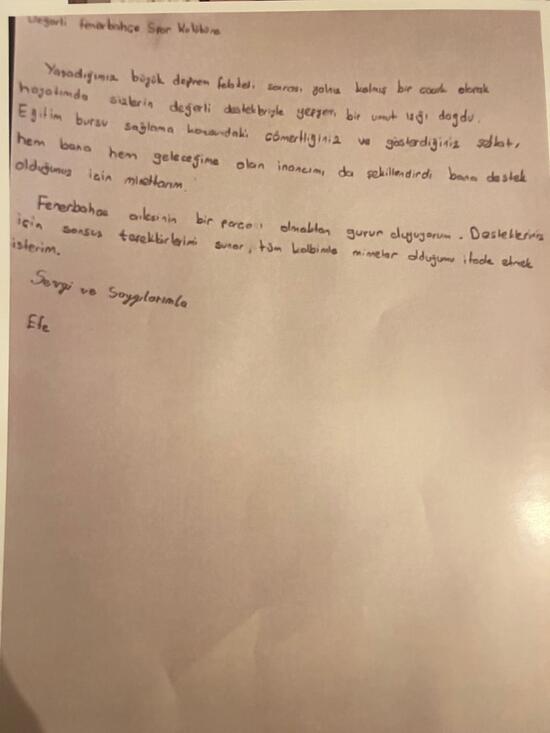 Değerli Fenerbahçe Spor Kulübüne
Yaşadığımız büyük deprem felaketi sonrası yalnız kalmış bir çocuk olarak
hayatımda sizlerin değerli destekleriyle yepyeni bir umut ışığı doğdu.
Eğitim bursu sağlama konusundaki cömertliğiniz ve gösterdiğiniz şefkat,
hem bana hem geleceğime olan inancımı da şekillendirdi bana destek
olduğunuz için minettarım.
Fenerbahçe ailesinin bir parçası olmaktan gurur duyuyorum. Destekleriniz
için sonsuz teşekkürlerimi sunar, tüm kalbimle minnettar olduğumu ifade etmek
isterim.
Sevgi ve Saygılarımla
Efe